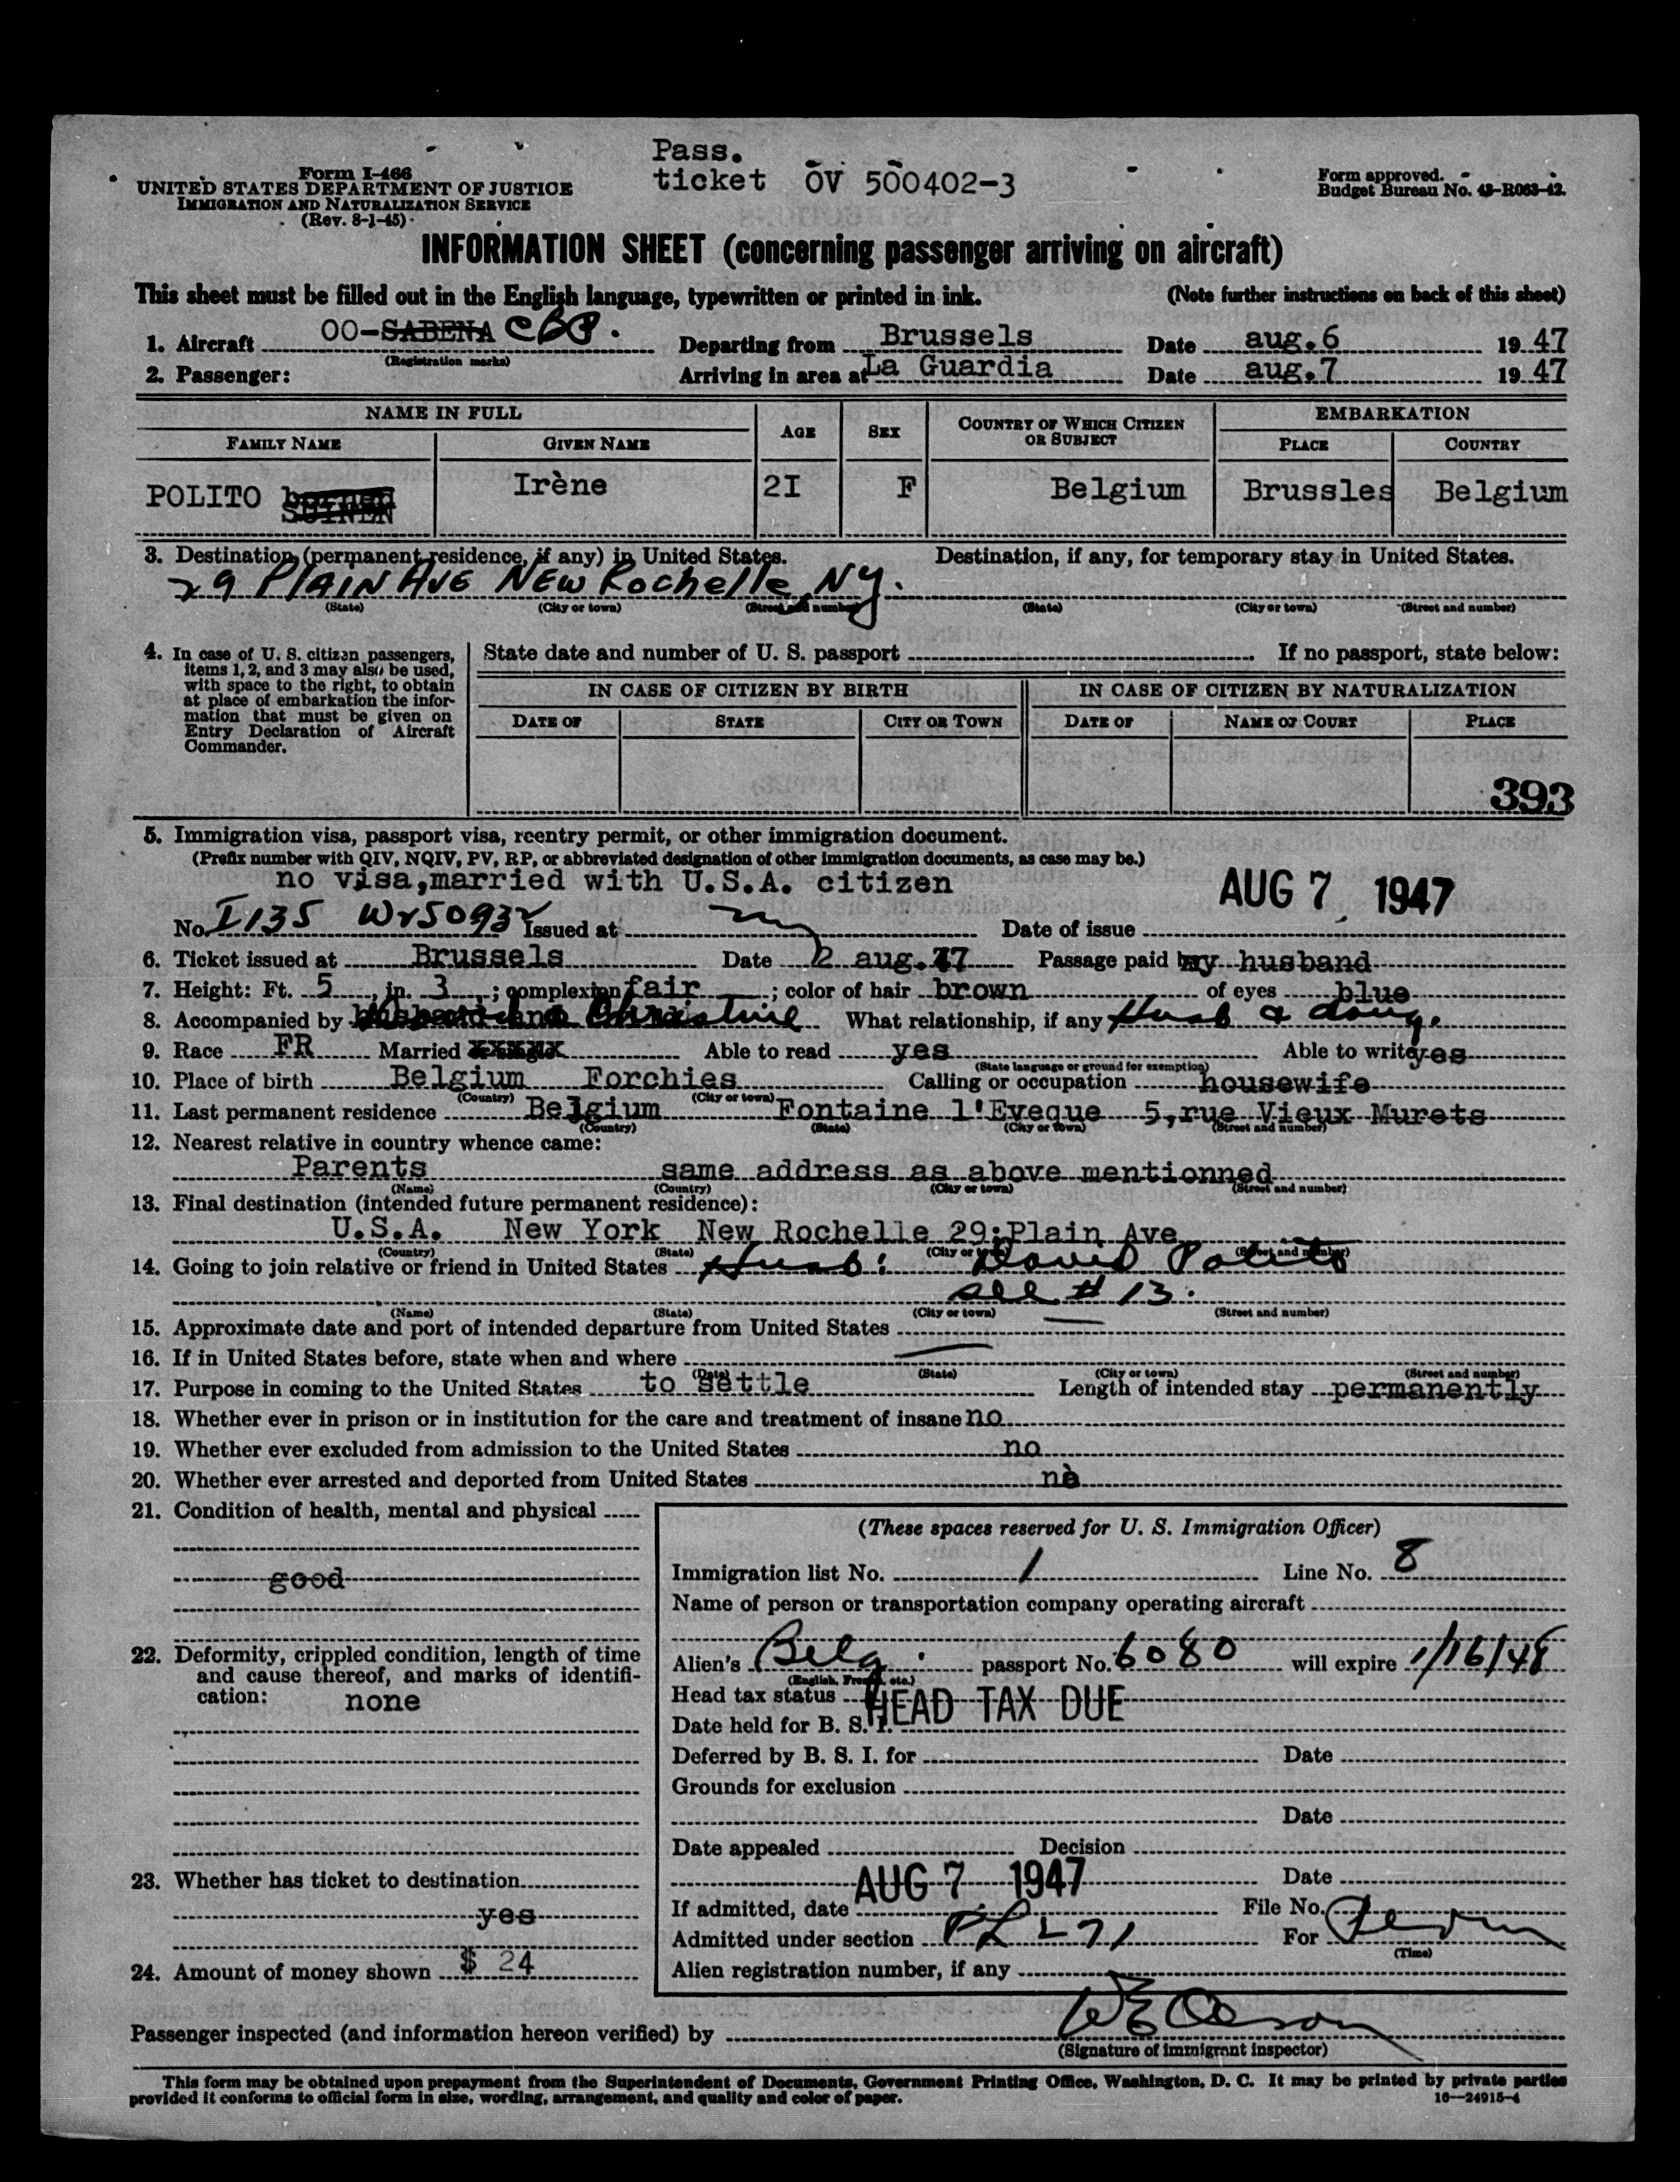 Pass.
ticket OV 500402-3
Form I-466
UNITED STATES DEPARTMENT OF JUSTICE
IMMIGRATION AND NATURALIZATION SERVICE
(Rev. 8-1-45)
Form approved.
Budget Bureau No. 43-R063-42.
INFORMATION SHEET (concerning passenger arriving on aircraft)
This sheet must be filled out in the English language, typewritten or printed in ink. (Note further instructions on back of this sheet)
1. Aircraft OO-SABENA CBP. Departing from Brussels Date aug.6 19 47
(Registration marks)
2. Passenger: Arriving in area at La Guardia Date aug.7 19 47
NAME IN FULL AGE SEX COUNTRY OF WHICH CITIZEN OR SUBJECT EMBARKATION
FAMILY NAME GIVEN NAME PLACE COUNTRY
POLITO Irène 2I F Belgium Brussles Belgium
3. Destination (permanent residence, if any) in United States. Destination, if any, for temporary stay in United States.
29 PlAIN AVE NEW Rochelle, NY.
(State) (City or town) (Street and number) (State) (City or town) (Street and number)
4. In case of U. S. citizen passengers, items 1, 2, and 3 may also be used, with space to the right, to obtain at place of embarkation the information that must be given on Entry Declaration of Aircraft Commander.
State date and number of U. S. passport If no passport, state below:
IN CASE OF CITIZEN BY BIRTH IN CASE OF CITIZEN BY NATURALIZATION
DATE OF STATE CITY OR TOWN DATE OF NAME OF COURT PLACE
393
5. Immigration visa, passport visa, reentry permit, or other immigration document.
(Prefix number with QIV, NQIV, PV, RP, or abbreviated designation of other immigration documents, as case may be.)
no visa,married with U.S.A. citizen AUG 7 1947
No. I135 Issued at Date of issue
6. Ticket issued at Brussels Date 2 aug.47 Passage paid by husband
7. Height: Ft. 5, in. 3; complexion fair; color of hair brown of eyes blue
8. Accompanied by Christine What relationship, if any Husb & daug.
9. Race FR Married or single Able to read yes Able to write yes
(State language or ground for exemption)
10. Place of birth Belgium Forchies Calling or occupation housewife
(Country) (City or town)
11. Last permanent residence Belgium Fontaine l'Eveque 5,rue Vieux Murets
(Country) (State) (City or town) (Street and number)
12. Nearest relative in country whence came:
Parents same address as above mentionned
(Name) (Country) (City or town) (Street and number)
13. Final destination (intended future permanent residence):
U.S.A. New York New Rochelle 29;Plain Ave
(Country) (State) (City or town) (Street and number)
14. Going to join relative or friend in United States Husb: David Polito
see # 13.
(Name) (State) (City or town) (Street and number)
15. Approximate date and port of intended departure from United States
16. If in United States before, state when and where
(Date) (State) (City or town) (Street and number)
17. Purpose in coming to the United States to settle Length of intended stay permanently
18. Whether ever in prison or in institution for the care and treatment of insane no
19. Whether ever excluded from admission to the United States no
20. Whether ever arrested and deported from United States no
21. Condition of health, mental and physical
good
22. Deformity, crippled condition, length of time and cause thereof, and marks of identification: none
23. Whether has ticket to destination
yes
24. Amount of money shown $ 24
(These spaces reserved for U. S. Immigration Officer)
Immigration list No. 1 Line No. 8
Name of person or transportation company operating aircraft
Alien's Belg. passport No. 6080 will expire 1/16/48
(English, French, etc.)
Head tax status HEAD TAX DUE
Date held for B. S. I.
Deferred by B. S. I. for Date
Grounds for exclusion
Date
Date appealed Decision
AUG 7 1947 Date
If admitted, date File No.
Admitted under section PL 271 For Perm
(Time)
Alien registration number, if any
Passenger inspected (and information hereon verified) by WE Olsson
(Signature of immigrant inspector)
This form may be obtained upon prepayment from the Superintendent of Documents, Government Printing Office, Washington, D. C. It may be printed by private parties
provided it conforms to official form in size, wording, arrangement, and quality and color of paper. 16—24915-4